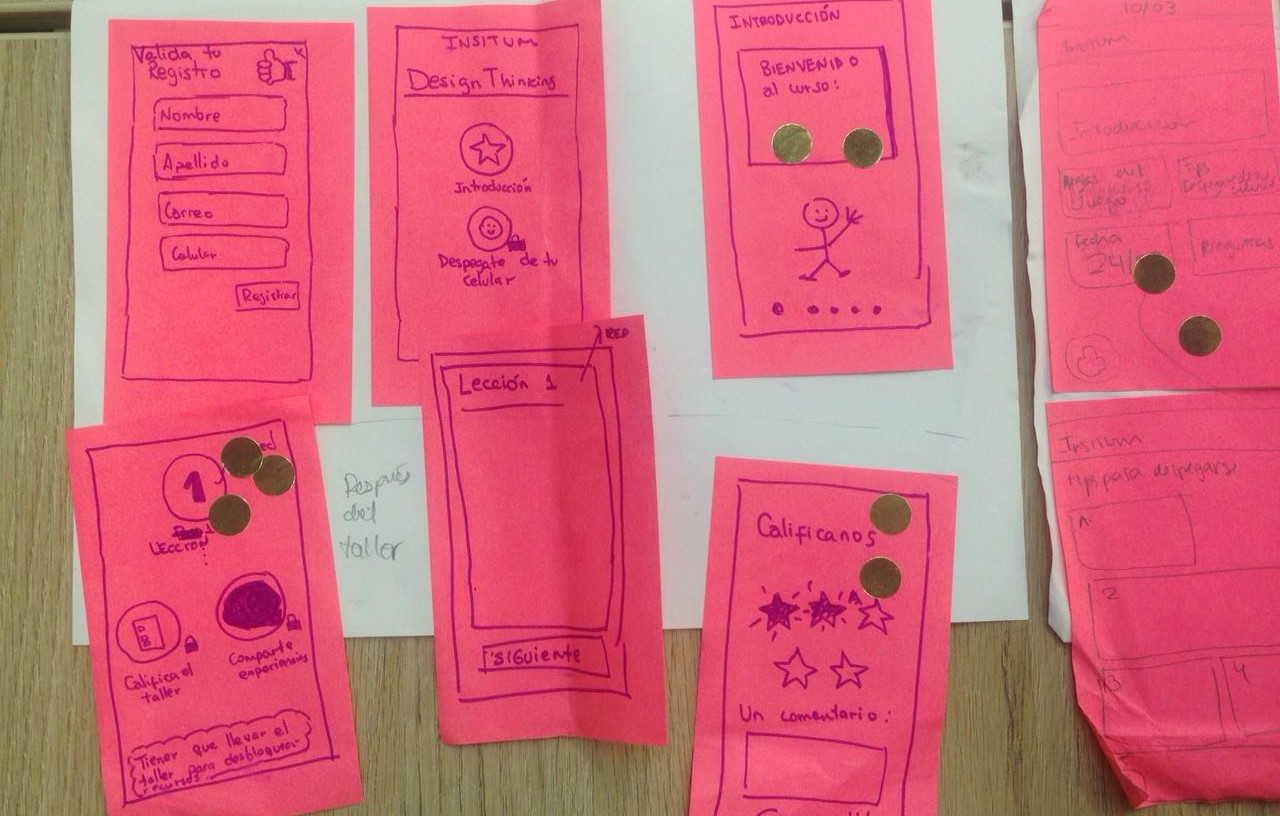 Valida tu
Registro
x
Nombre
Apellido
Correo
Celular
Registrar
INSITUM
Design Thinking
Introducción
Despegate de tu
Celular
INTRODUCCIÓN
BIENVENIDO
al curso:
10/03
Insitum
Introducción
Tips
Fecha
24/
Preguntas
1
LECCIÓN
Califica el
taller
Comparte
experiencias
Tiener que llevar el
taller para desbloquear
recursos
Después
del
taller
RED
Lección 1
SIGUIENTE
Calificanos
Un comentario:
Insitum
tips para despegarse
1.
2
3
4